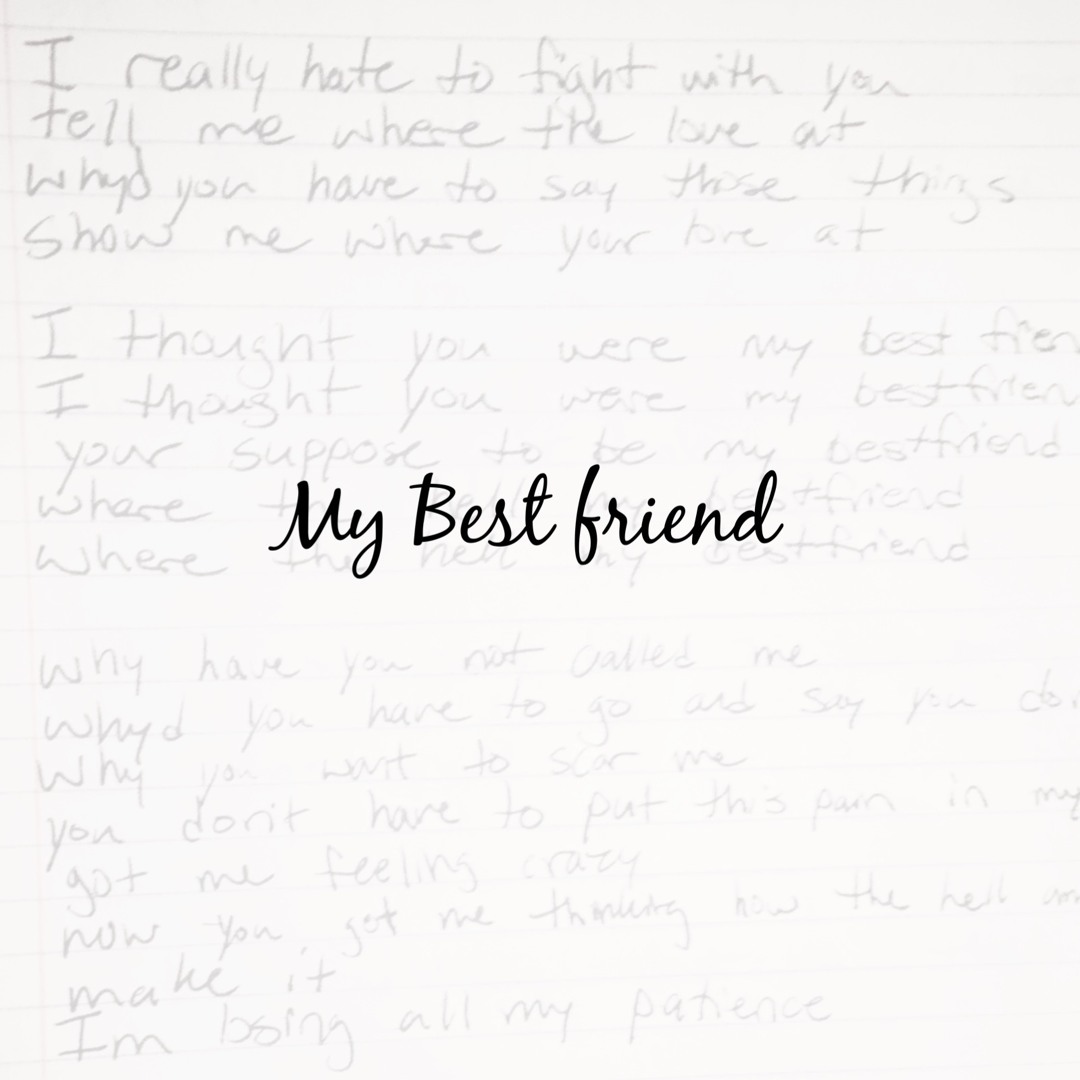 I really hate to fight with you
tell me where the love at
whyd you have to say those things
Show me where your love at
I thought you were my best frien
I thought you were my bestfrien
your suppose to be my bestfriend
where the hell my bestfriend
My Best friend
where the hell my bestfriend
why have you not called me
whyd you have to go and say you do
why you want to scar me
you don't have to put this pain in my
got me feeling crazy
now you got me thinking how the hell
make it
Im losing all my patience